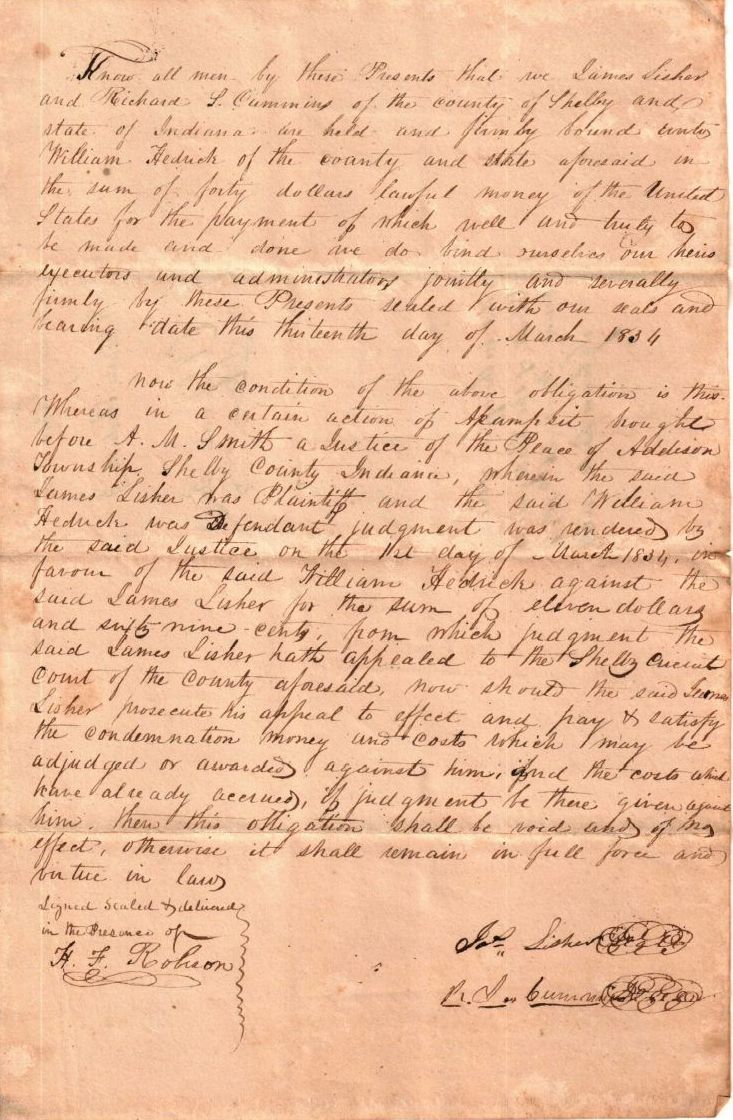 Know all men by these Presents that we James Lisher
and Richard S. Cummins of the county of Shelby and
state of Indiana are held and firmly bound unto
William Hedrick of the county and state aforesaid in
the sum of forty dollars lawful money of the United
States for the payment of which well and truly to
be made and done we do bind ourselves our heirs
executors and administrators jointly and severally
firmly by these Presents sealed with our seals and
bearing date this thirteenth day of March 1834
now the condition of the above obligation is this.
Whereas in a certain action of Assumpsit brought
before A. M. Smith a Justice of the Peace of Addison
Township, Shelby County Indiana, wherein the said
James Lisher was Plaintiff and the said William
Hedrick was Defendant judgment was rendered by
the said Justice on the day of March 1834, in
favour of the said William Hedrick against the
said James Lisher for the sum of eleven dollars
and sixty nine cents, from which judgment the
said James Lisher hath appealed to the Shelby circuit
Court of the County aforesaid, now should the said James
Lisher prosecute his appeal to effect and pay & satisfy
the condemnation money and costs which may be
adjudged or awarded against him, and the costs which
have already accrued, if judgment be there given against
him, then this obligation shall be void and of no
effect, otherwise it shall remain in full force and
virtue in law
Signed sealed & delivered
in the Presence of
H. F. Robison
Jas. Lisher
R. S. Cummins